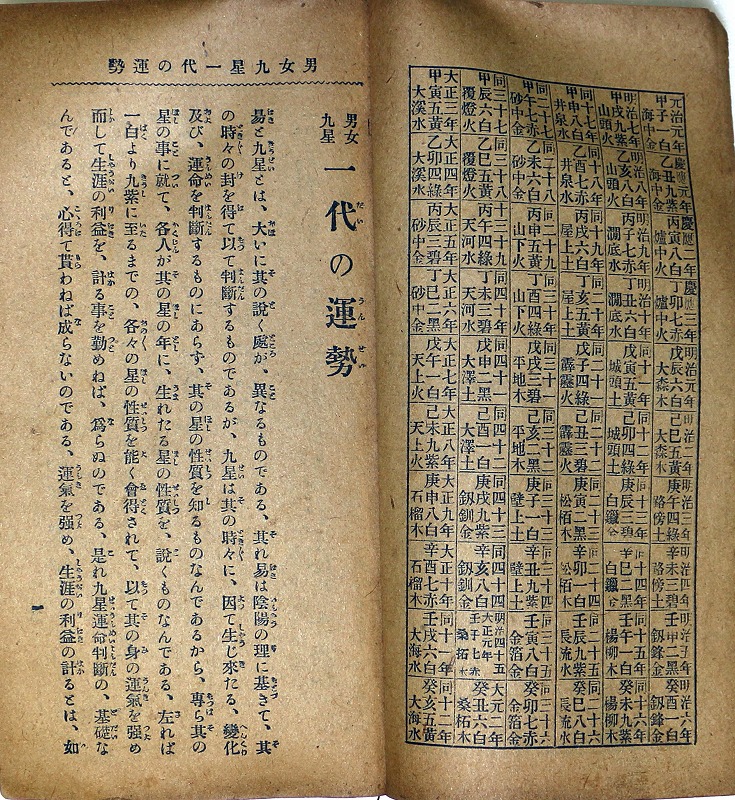 元治元年 慶應元年 慶應二年 慶應三年 明治元年 明治二年 明治三年 明治四年 明治五年 明治六年
甲子一白 乙丑九紫 丙寅八白 丁卯七赤 戊辰六白 己巳五黃 庚午四綠 辛未三碧 壬申二黑 癸酉一白
海中金 海中金 爐中火 爐中火 大森木 大森木 路傍土 路傍土 釼鋒金 釼鋒金
明治七年 明治八年 明治九年 明治十年 同十一年 同十二年 同十三年 同十四年 同十五年 同十六年
甲戌九紫 乙亥八白 丙子七赤 丁丑六白 戊寅五黃 己卯四綠 庚辰三碧 辛巳二黑 壬午一白 癸未九紫
山頭火 山頭火 澗底水 澗底水 城頭土 城頭土 白鑞金 白鑞金 楊柳木 楊柳木
同十七年 同十八年 同十九年 同二十年 同二十一 同二十二 同二十三 同二十四 同二十五 同二十六
甲申八白 乙酉七赤 丙戌六白 丁亥五黃 戊子四綠 己丑三碧 庚寅二黑 辛卯一白 壬辰九紫 癸巳八白
井泉水 井泉水 屋上土 屋上土 霹靂火 霹靂火 松栢木 松栢木 長流水 長流水
同二十七 同二十八 同二十九 同三十年 同三十一 同三十二 同三十三 同三十四 同三十五 同三十六
甲午七赤 乙未六白 丙申五黃 丁酉四綠 戊戌三碧 己亥二黑 庚子一白 辛丑九紫 壬寅八白 癸卯七赤
砂中金 砂中金 山下火 山下火 平地木 平地木 壁上土 壁上土 金箔金 金箔金
同三十七 同三十八 同三十九 同四十年 同四十一 同四十二 同四十三 同四十四 明治四十五大正元年 大正二年
甲辰六白 乙巳五黃 丙午四綠 丁未三碧 戊申二黑 己酉一白 庚戌九紫 辛亥八白 壬子七赤 癸丑六白
覆燈火 覆燈火 天河水 天河水 大澤土 大澤土 釵釧金 釵釧金 桑拓木 桑柘木
大正三年 大正四年 大正五年 大正六年 大正七年 大正八年 大正九年 大正十年 同十一年 同十二年
甲寅五黃 乙卯四綠 丙辰三碧 丁巳二黑 戊午一白 己未九紫 庚申八白 辛酉七赤 壬戌六白 癸亥五黃
大溪水 大溪水 砂中金 砂中金 天上火 天上火 石榴木 石榴木 大海水 大海水
男女九星一代の運勢
男女九星 一代の運勢
易と九星とは、大いに其の說く處が、異なるものである、其れ易は陰陽の理に基きて、其
の時々の封を得て以て判斷するものであるが、九星は其の時々に、因て生じ來たる、變化
及び、運命を判斷するものにあらず、其の星の性質を知るものなんであるから、專ら其の
星の事に就て、各人が其の星の年に、生れたる星の性質を、說くものなんである、左れば
一白より九紫に至るまでの、各々の星の性質を能く會得されて、以て其の身の運氣を强め
而して生涯の利益を、計る事を勤めねば、爲らぬのである、是れ九星運命判斷の、基礎な
んであると、心得て貰わねば成らないのである、運氣を强め、生涯の利益の計るとは、如